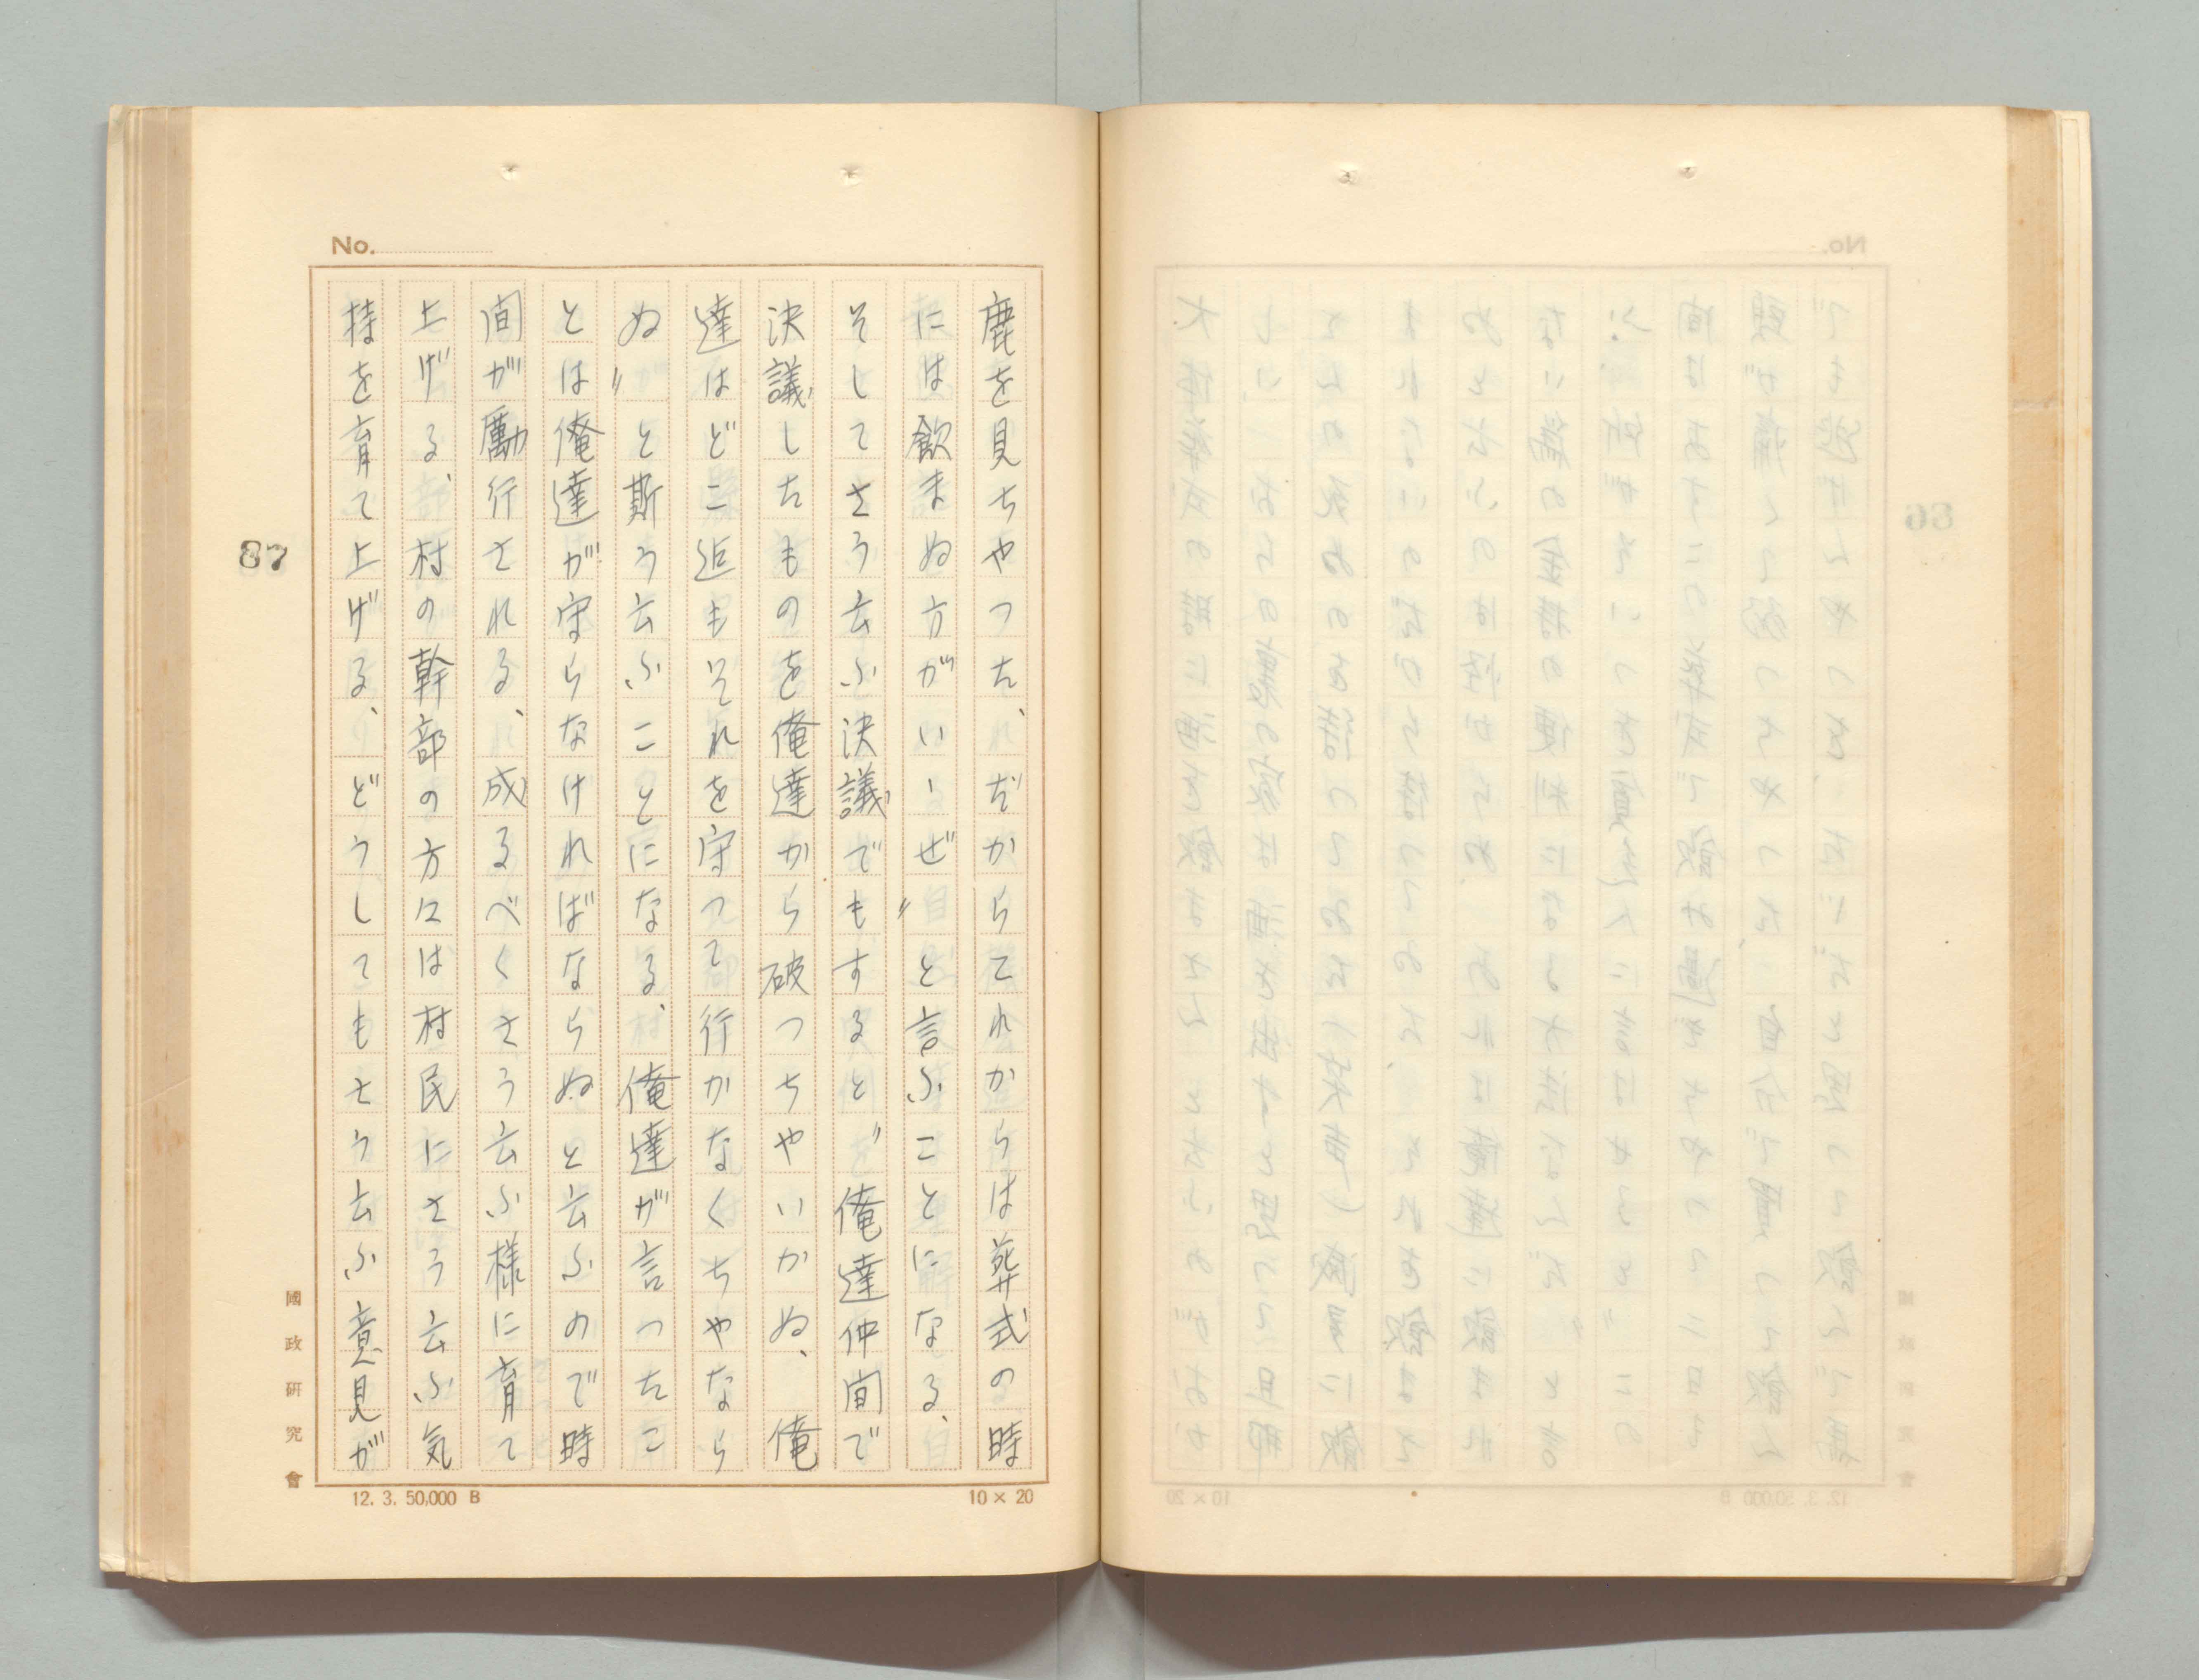 No.
鹿を見ちやつた、だからこれからは葬式の時
には飲まぬ方がいゝぜ〃と言ふことになる、
そしてさう云ふ決議でもすると〃俺達仲間で
決議したものを俺達から破つちやいかぬ、俺
達はどこ迄もそれを守つて行かなくちやなら
ぬ〃と斯う云ふことになる、俺達が言つたこ
とは俺達が守らなければならぬと云ふので時
間が励行される、成るべくさう云ふ様に育て
上げる、村の幹部の方々は村民にさう云ふ気
持を育て上げる、どうしてもさう云ふ意見が
87
國政研究會
12. 3. 50,000 B
10 × 20